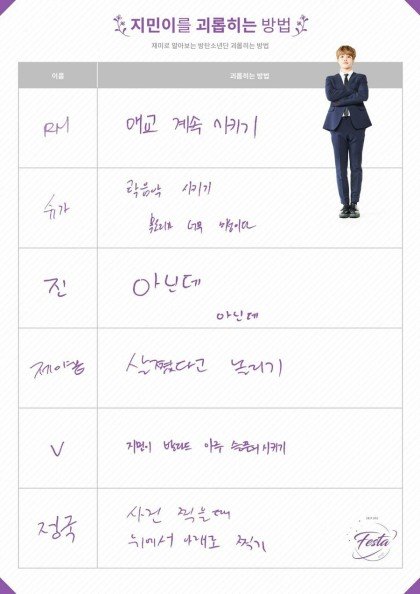 지민이를 괴롭히는 방법
재미로 알아보는 방탄소년단 괴롭히는 방법
이름 괴롭히는 방법
RM 애교 계속 시키기
슈가 락음악 시키기
너무
진 아닌데
아닌데
제이홉 살쪘다고 놀리기
V 지민이 발라드 아주 슬픈거 시키기
정국 사진 찍을때
위에서 아래로 찍기
Festa